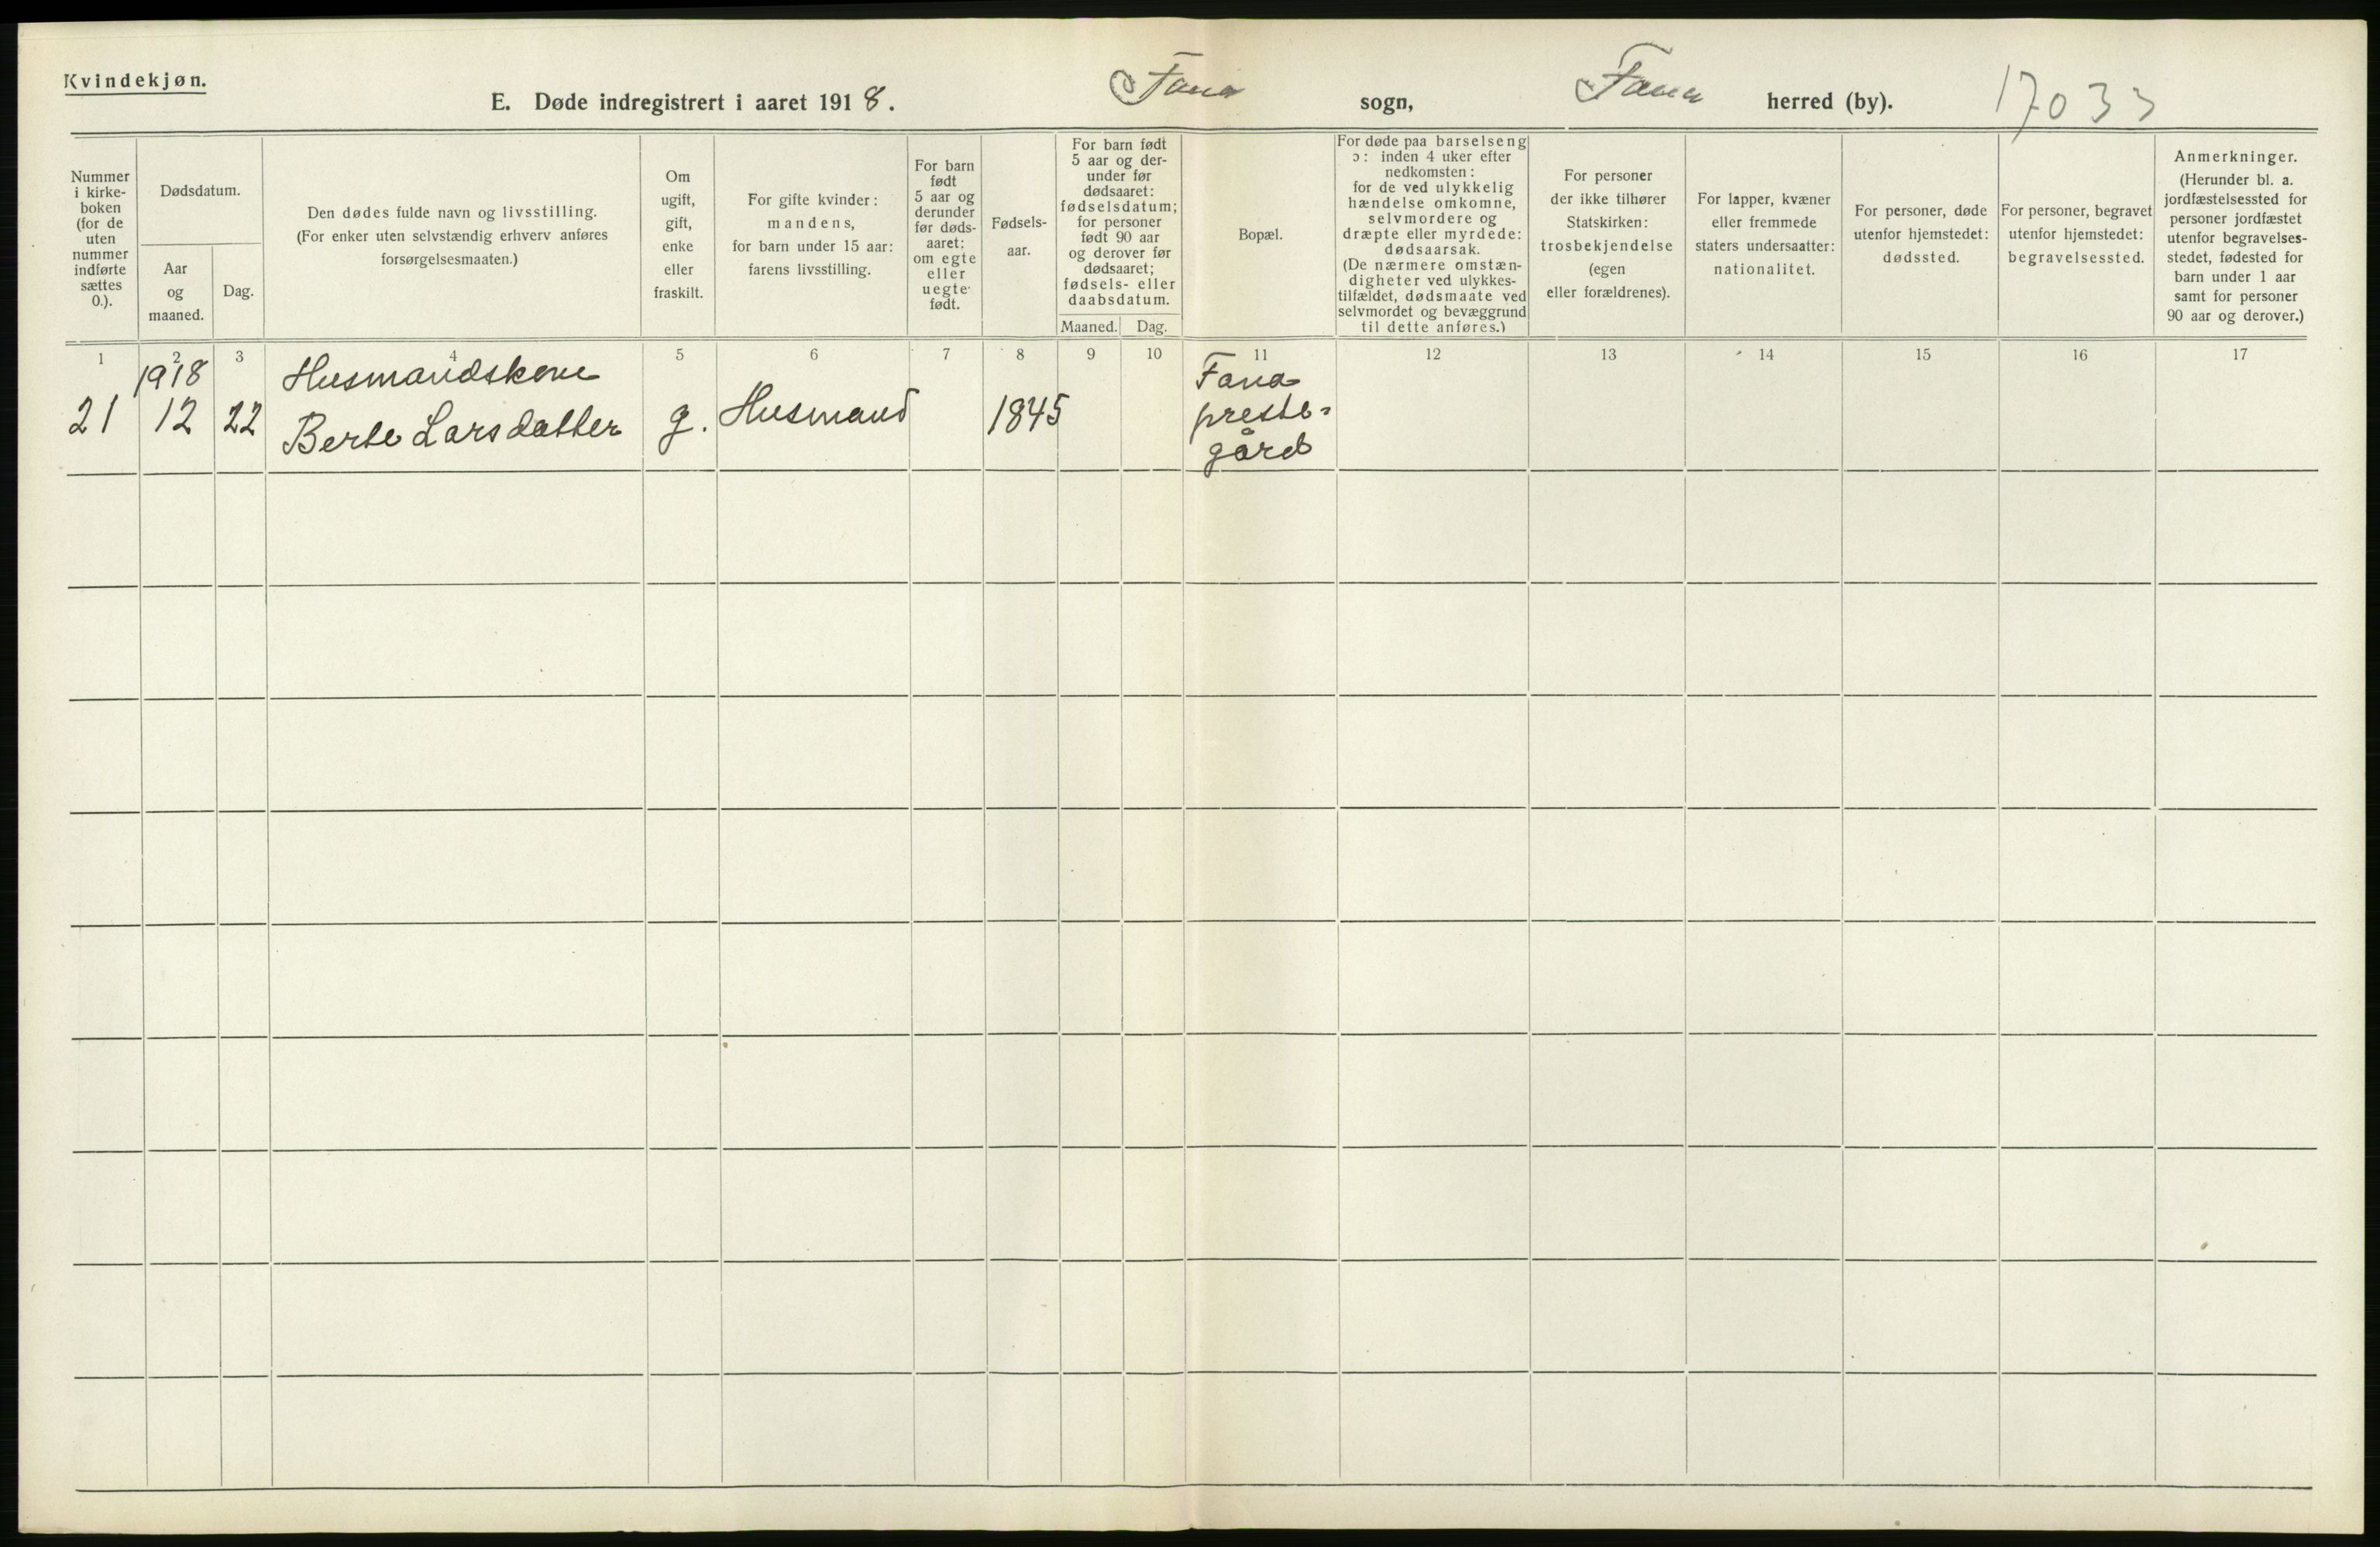 Kvindekjøn.
E. Døde indregistrert i aaret 1918. Fana sogn, Fana herred (by). 17033
Nummer
i kirke-
boken
(for de
uten
nummer
indførte
sættes
0.).
Dødsdatum.
Aar
og
maaned.
Dag.
Den dødes fulde navn og livsstilling.
(For enker uten selvstændig erhverv anføres
forsørgelsesmaaten.)
Om
ugift,
gift,
enke
eller
fraskilt.
For gifte kvinder:
mandens,
for barn under 15 aar:
farens livsstilling.
For barn
født
5 aar og
derunder
før døds-
aaret:
om egte
eller
uegte
født.
Fødsels-
aar.
For barn født
5 aar og der-
under før
dødsaaret:
fødselsdatum;
for personer
født 90 aar
og derover før
dødsaaret;
fødsels- eller
daabsdatum.
Maaned. Dag.
Bopæl.
For døde paa barselseng
ɔ: inden 4 uker efter
nedkomsten:
for de ved ulykkelig
hændelse omkomne,
selvmordere og
dræpte eller myrdede:
dødsaarsak.
(De nærmere omstæn-
digheter ved ulykkes-
tilfældet, dødsmaate ved
selvmordet og bevæggrund
til dette anføres.)
For personer
der ikke tilhører
Statskirken:
trosbekjendelse
(egen
eller forældrenes).
For lapper, kvæner
eller fremmede
staters undersaatter:
nationalitet.
For personer, døde
utenfor hjemstedet:
dødssted.
For personer, begravet
utenfor hjemstedet:
begravelsessted.
Anmerkninger.
(Herunder bl. a.
jordfæstelsessted for
personer jordfæstet
utenfor begravelses-
stedet, fødested for
barn under 1 aar
samt for personer
90 aar og derover.)
1 2 3 4 5 6 7 8 9 10 11 12 13 14 15 16 17
1918 Husmandskone Fana
21 12 22 Berte Larsdatter g. Husmand 1845 preste-
gård